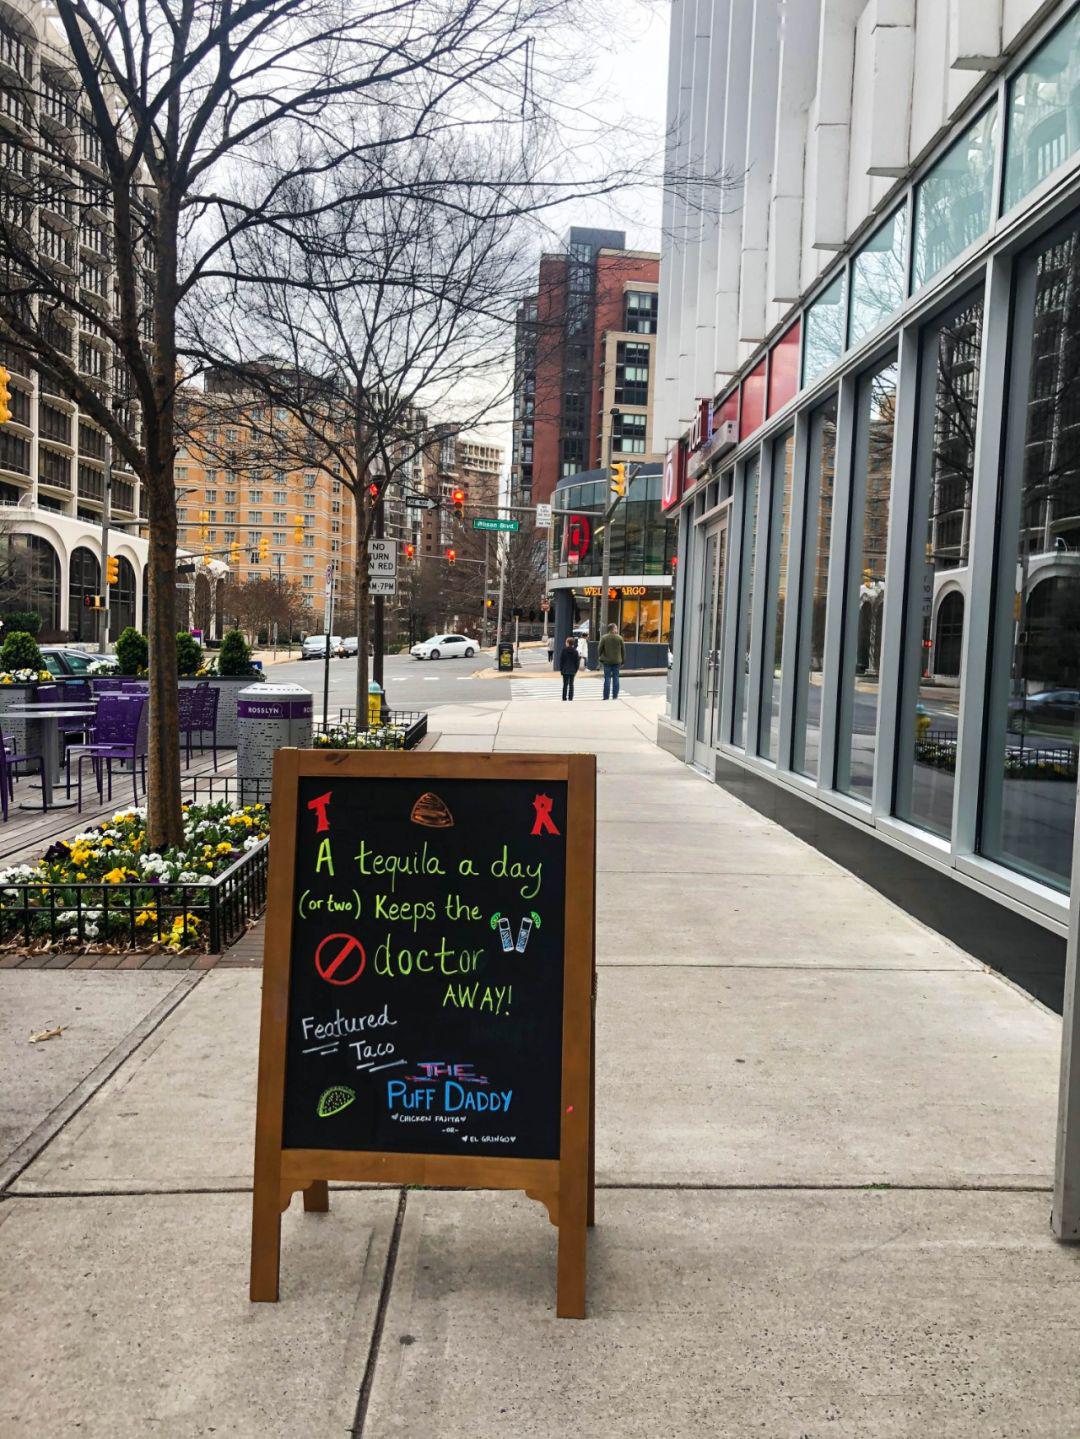 ONE WAY
Wilson Blvd.
NO
TURN
ON RED
AM-7PM
WELLS FARGO
ROSSLYN
T R
A tequila a day
(or two) Keeps the
doctor
AWAY!
Featured
Taco
THE
PUFF DADDY
CHICKEN FAJITA
-OR-
EL GRINGO